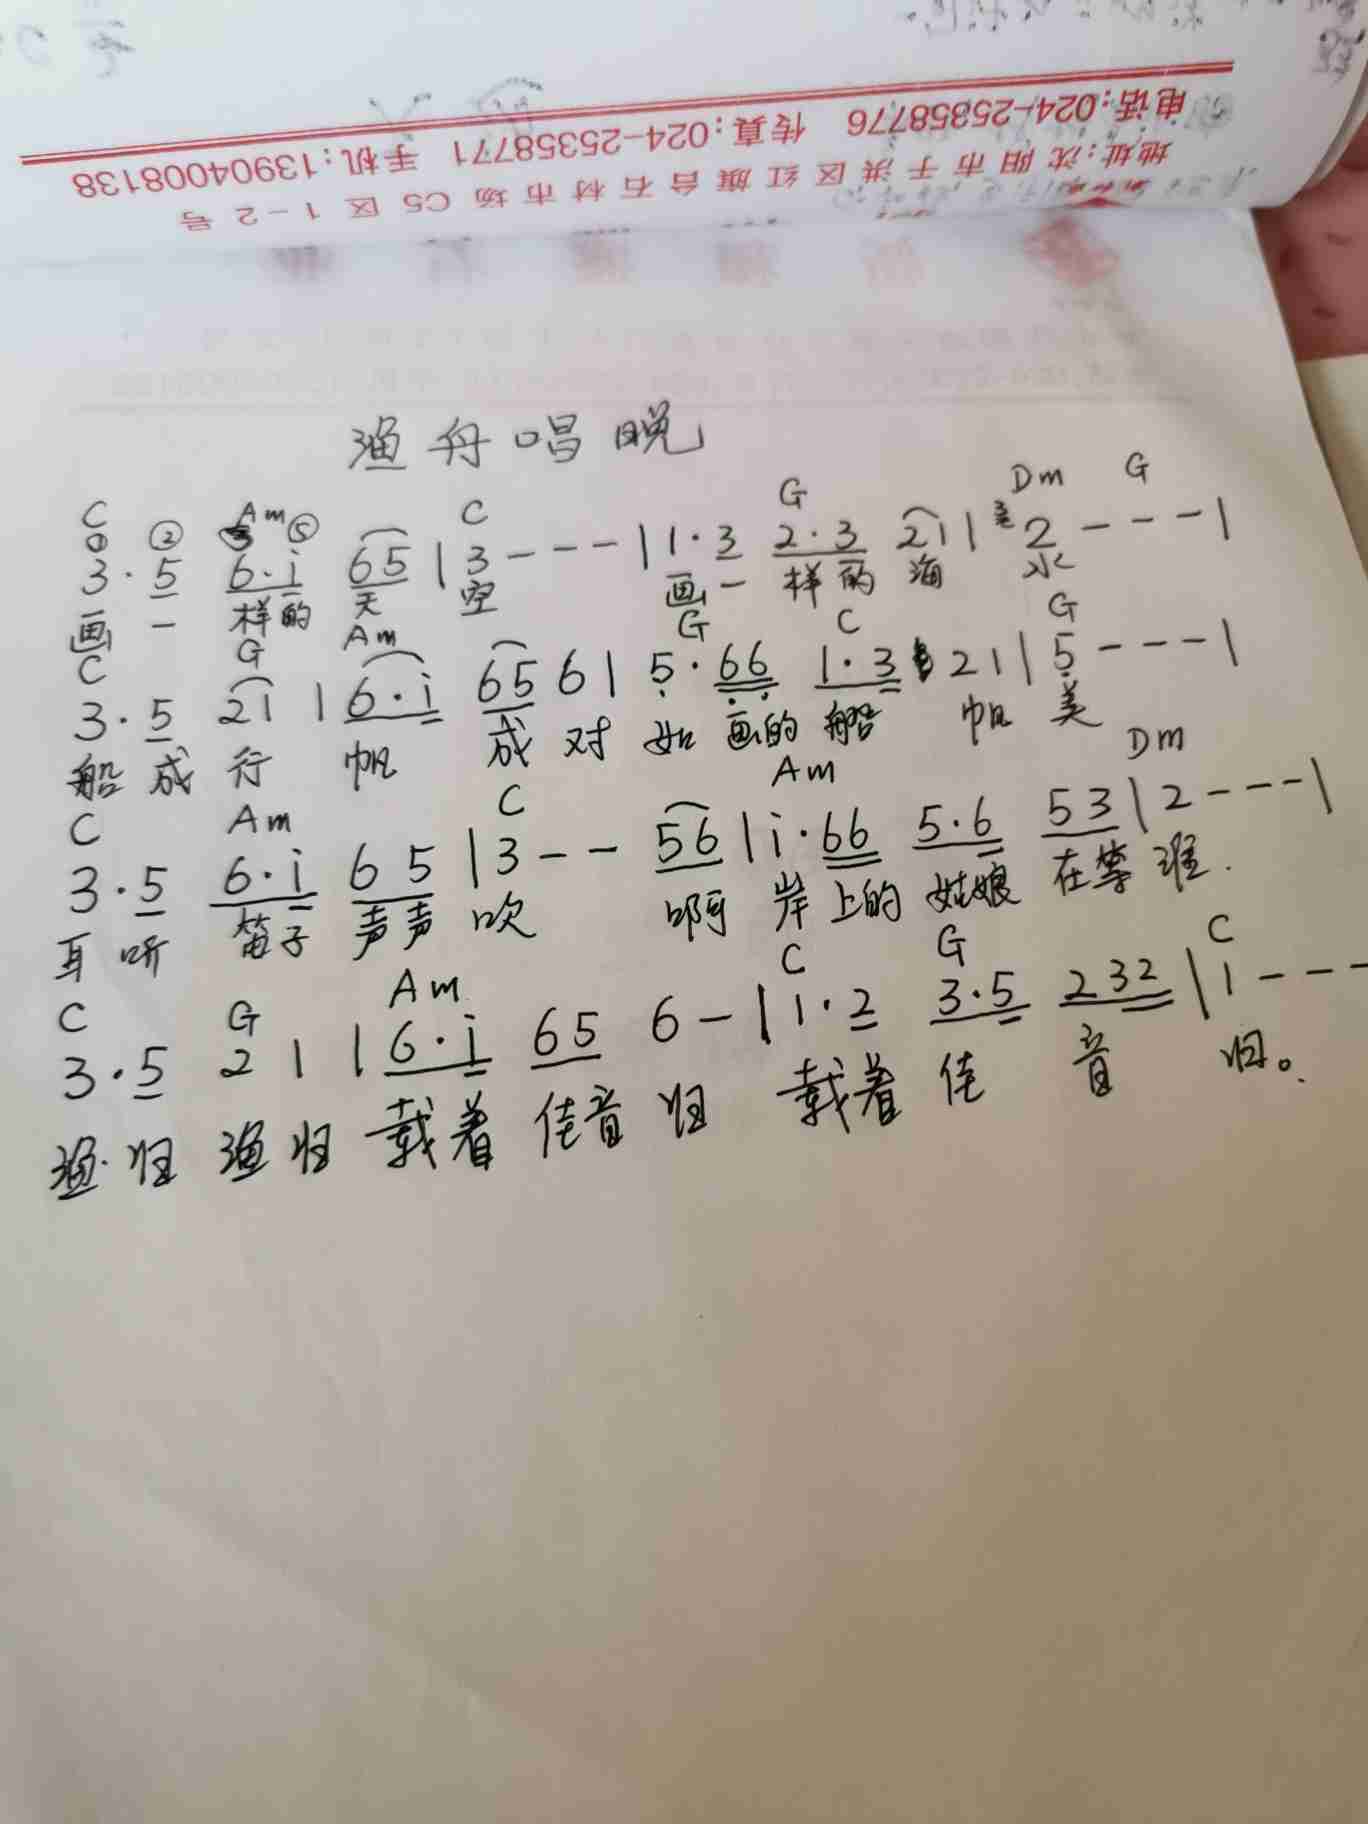 电话:024-25358776 传真:024-25358771 手机:13904008138
地址:沈阳市于洪区红旗台石材市场C5区1-2号
渔舟唱晚
C Am C G Dm G
② ⑤
3·5 6·i 65 | 3 - - - | 1·3 2·3 21 | 2 - - - |
画一样的天空 画一样的海水
C G Am G C G
3·5 21 | 6·i 65 6 | 5·66 1·3 21 | 5 - - - |
船成行帆成对如画的船帆美
C Am C Am Dm
3·5 6·i 65 | 3 - - 56 | i·66 5·6 53 | 2 - - - |
耳听笛子声声吹 啊岸上的姑娘在等谁.
C G Am C G C
3·5 2 1 | 6·i 65 6 - | 1·2 3·5 232 | 1 - - -
渔归渔归载着佳音归 载着佳音归。